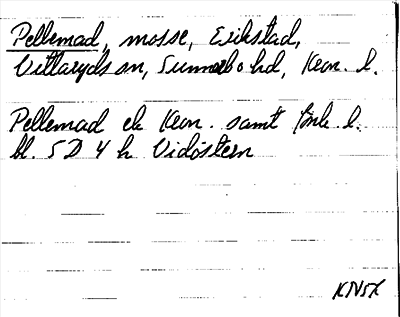 Pellemad, mosse, Erikstad,
Vittaryds sn, Sunnerbo hd, Kron. l.
Pellemad ek Kron. samt Jönk. l.
bl. 5D 4 h Vidöstern